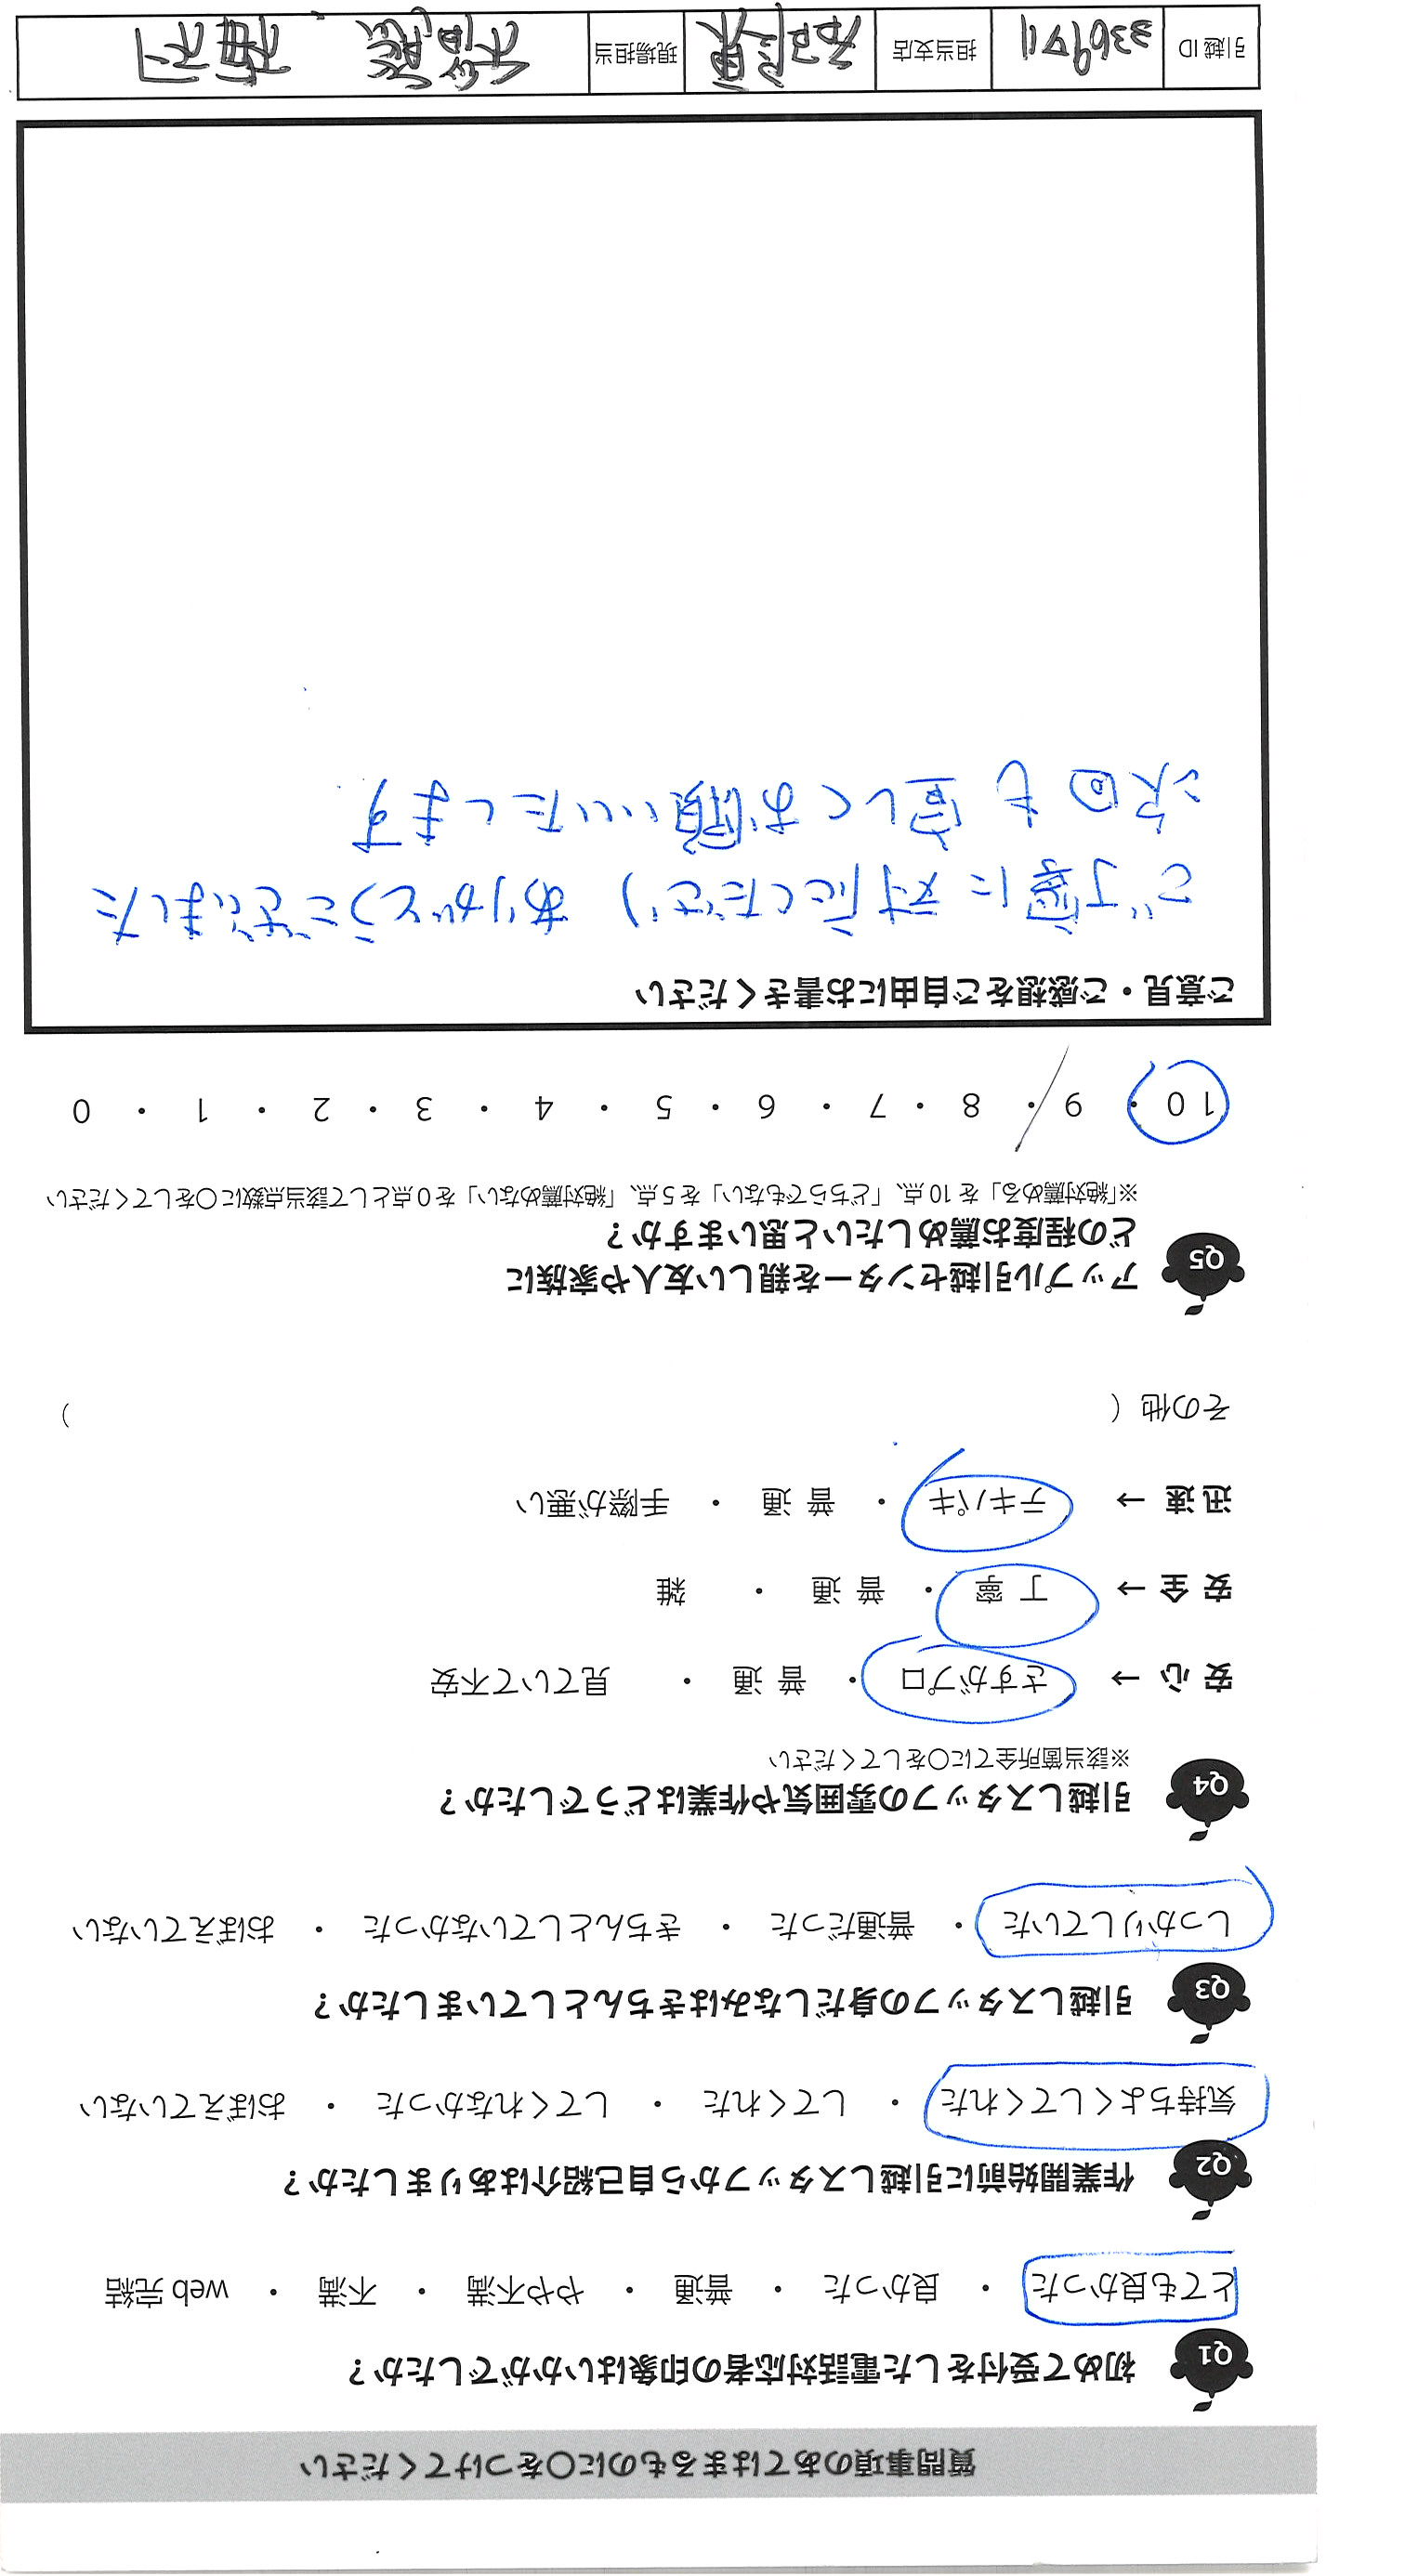 質問事項のあてはまるものに〇をつけてください
Q1 初めて受付をした電話対応者の印象はいかがでしたか？
とても良かった ・ 良かった ・ 普通 ・ やや不満 ・ 不満 ・ web 完結
Q2 作業開始前に引越しスタッフから自己紹介はありましたか？
気持ちよくしてくれた ・ してくれた ・ してくれなかった ・ おぼえていない
Q3 引越しスタッフの身だしなみはきちんとしていましたか？
しっかりしていた ・ 普通だった ・ きちんとしていなかった ・ おぼえていない
Q4 引越しスタッフの雰囲気や作業はどうでしたか？
※該当箇所全てに〇をしてください
安 心 → さすがプロ ・ 普 通 ・ 見ていて不安
安 全 → 丁 寧 ・ 普 通 ・ 雑
迅 速 → テキパキ ・ 普 通 ・ 手際が悪い
その他 ( )
Q5 アップル引越センターを親しい友人や家族に
どの程度お薦めしたいと思いますか？
※「絶対薦める」を 10 点、「どちらでもない」を 5 点、「絶対薦めない」を 0 点として該当点数に〇をしてください
10 ・ 9 ・ 8 ・ 7 ・ 6 ・ 5 ・ 4 ・ 3 ・ 2 ・ 1 ・ 0
ご意見・ご感想をご自由にお書きください
ご丁寧に対応くださり ありがとうございました
次回も宜しくお願いいたします
引越 ID 担当支店 現場担当